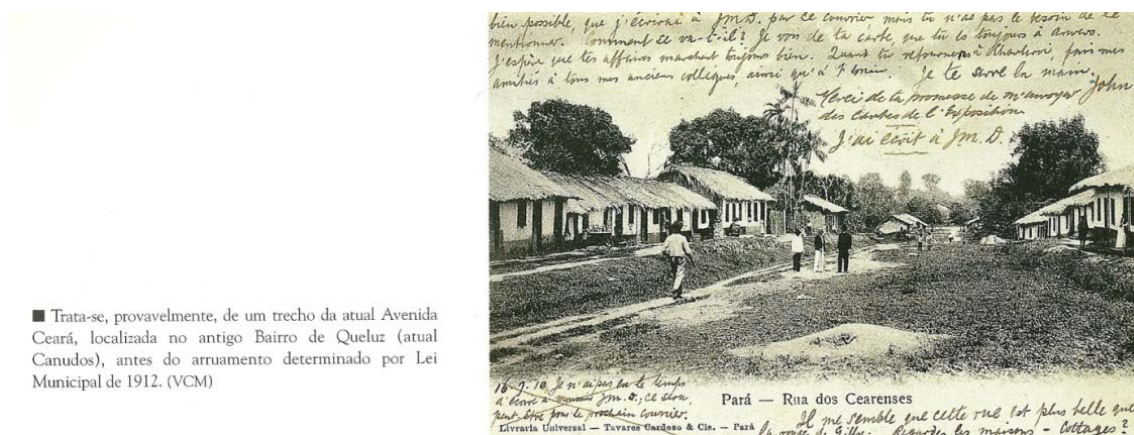 ■ Trata-se, provavelmente, de um trecho da atual Avenida
Ceará, localizada no antigo Bairro de Queluz (atual
Canudos), antes do arruamento determinado por Lei
Municipal de 1912. (VCM)
bien possible, que j'écrirai à JM.D. par ce courrier mais tu n'as pas le besoin de le
mentionner. Comment se va-t-il? Je vois de ta carte, que tu es toujours à Anvers.
J'espère que tes affaires marchent toujours bien. Quand tu retourneras à Charleroi, fais mes
amitiés à tous mes anciens collègues, ainsi qu'à Je te serre la main.
John
Merci de ta promesse de m'envoyer
des cartes de l'Exposition
J'ai écrit à JM.D.
16.9.10 Je n'ai pas eu le temps
d'écrire à JM.D., ce sera
peut-être pour le prochain courrier.
Pará — Rua dos Cearenses
Livraria Universal — Tavares Cardoso & Cie. — Pará
Il me semble que cette rue est plus belle que
la de Gilly. Regardes les maisons - Cottages?